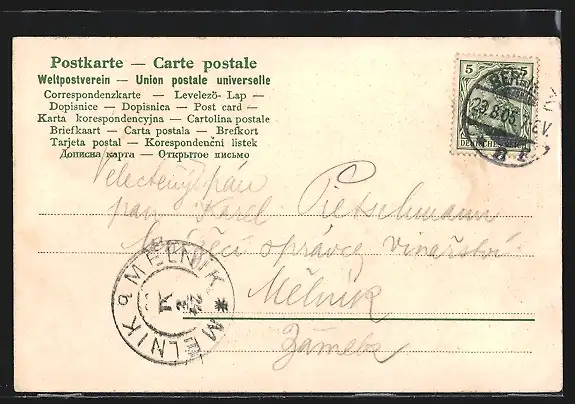 Postkarte — Carte postale
Weltpostverein — Union postale universelle
Correspondenzkarte — Levelező- Lap —
Dopisnice — Dopisnica — Post card —
Karta korespondencyjna — Cartolina postale
Briefkaart — Carta postala — Brefkort
Tarjeta postal — Korespondenční listek
Дописна карта — Открытое письмо
5 5
23.8.05
DEUTSCHES REICH
Velectěný pán
pan Karel Pietschmann
správce vinařství
Mělník
Zámek
MELNIK * MELNIK